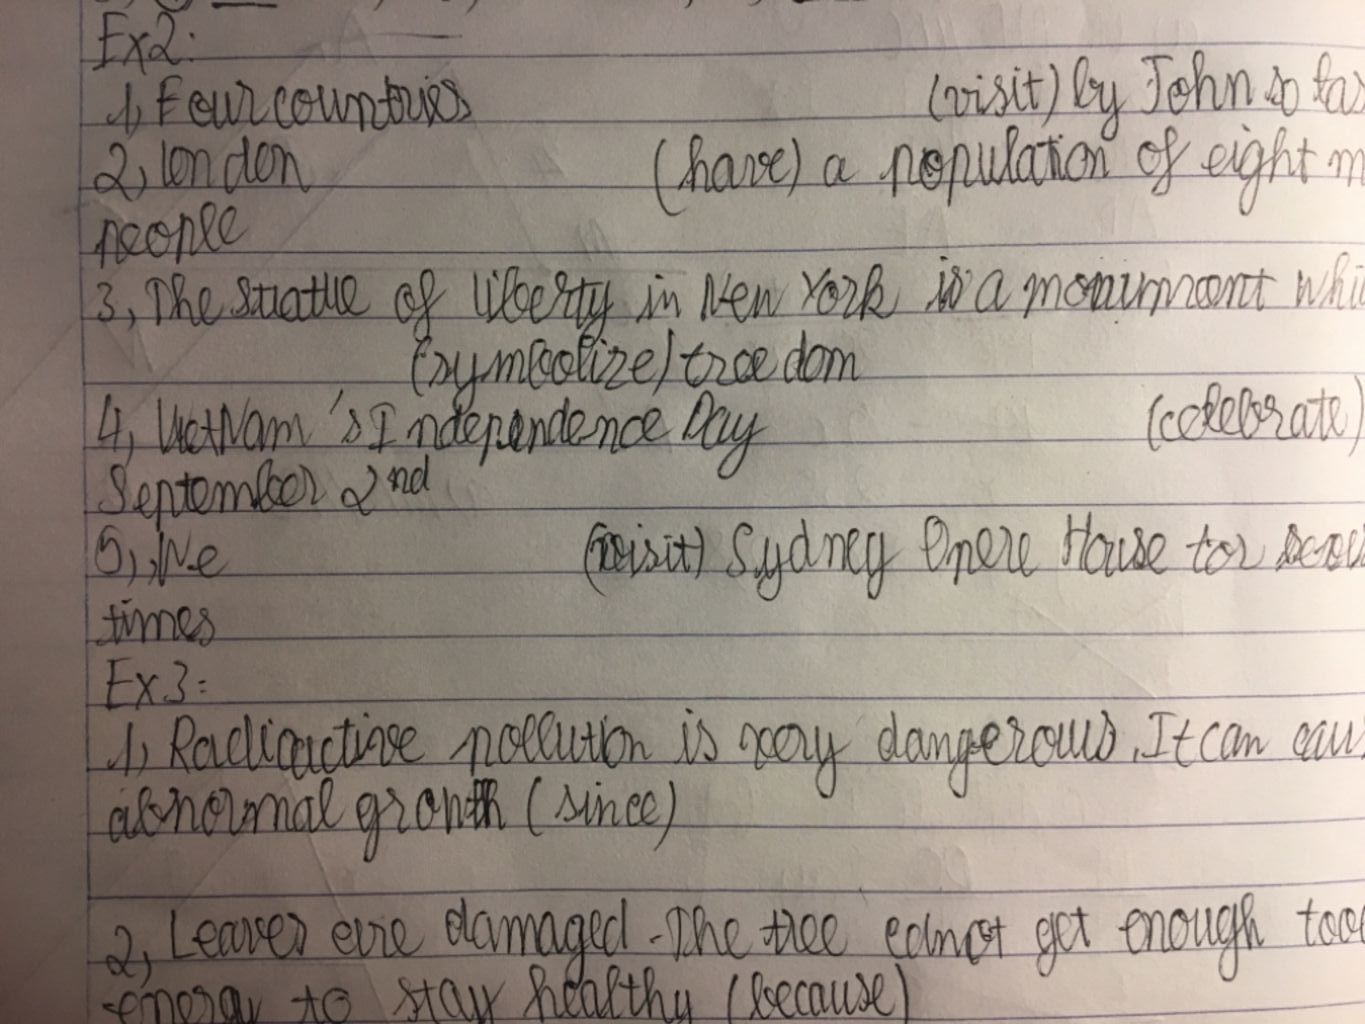 Ex2:
1, Four countries (visit) by John so far
2, London (have) a population of eight
people
3, The Statue of Liberty in New York is a monument
(symbolize) freedom
4, VietNam's Independence Day (celebrate)
September 2nd
5, We (visit) Sydney Opera House for
times
Ex3:
1, Radioactive pollution is very dangerous. It can
abnormal growth (since)
2, Leaves are damaged. The tree cannot get enough
energy to stay healthy (because)